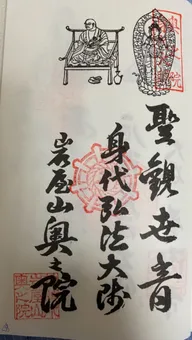 聖観世音
身代弘法大师
岩屋山奥之院